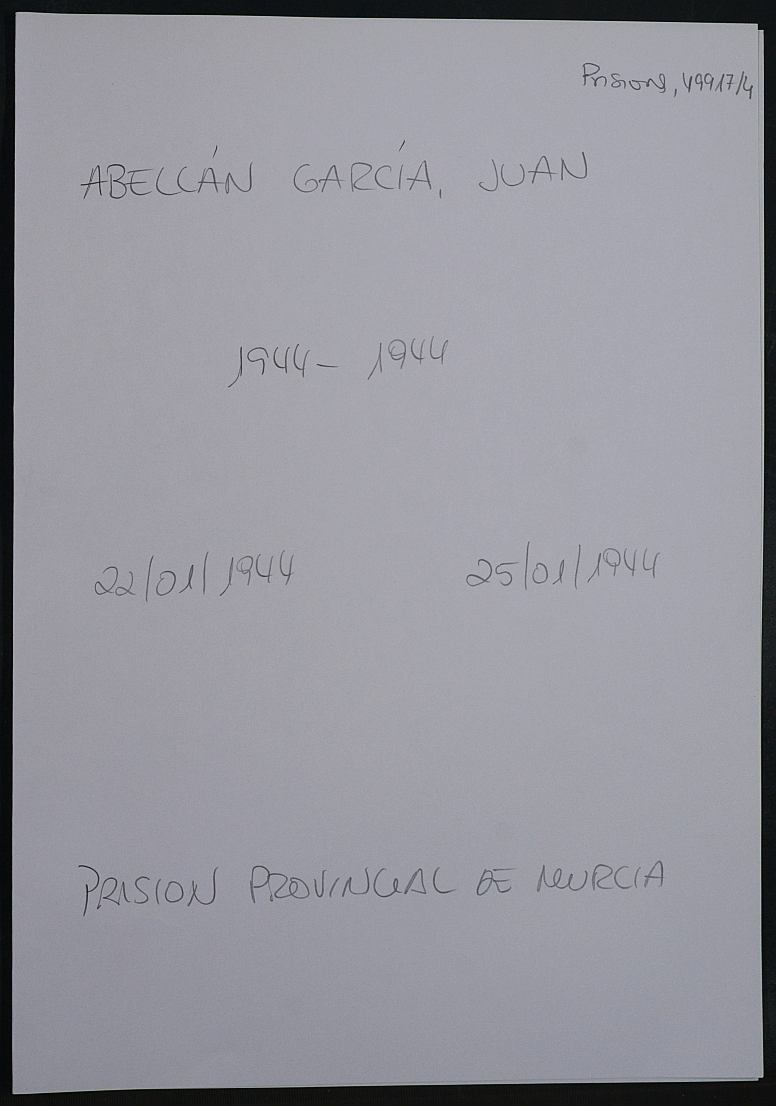 Prisiones, 49917/4
ABELLÁN GARCÍA, JUAN
1944 - 1944
22/01/1944 25/01/1944
PRISION PROVINCIAL DE MURCIA